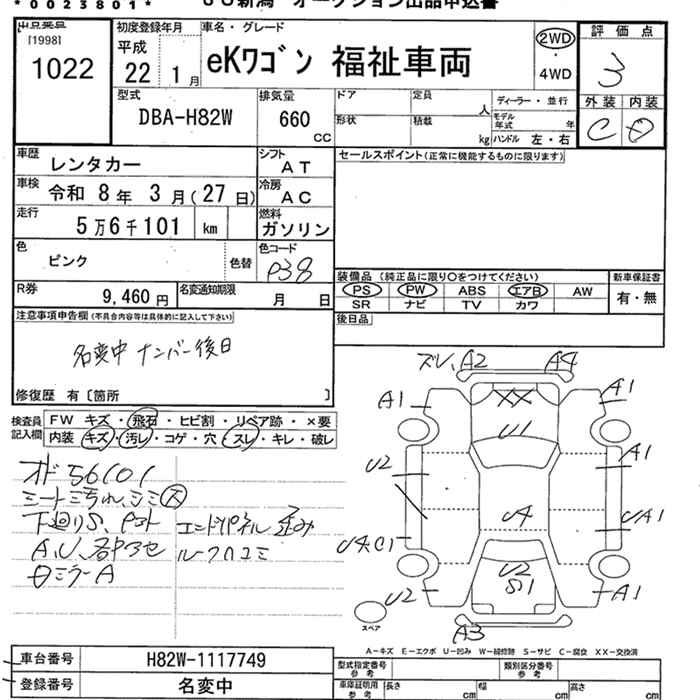 *0023801*
JU新潟 オークション出品申込書
出品番号
[1998]
1022
初度登録年月
平成
22年1月
車名・グレード
eKワゴン 福祉車両
2WD
・4WD
評価点
3
外装 内装
C D
型式
DBA-H82W
排気量
660
CC
ドア
定員
人
形状
積載
kg
ディーラー・並行
モデル年式
年
ハンドル 左・右
車歴
レンタカー
シフト
AT
車検
令和 8年 3月(27日)
冷房
AC
走行
5万6千101 km
燃料
ガソリン
セールスポイント(正常に機能するものに限ります)
色
ピンク
色替
色コード
P38
R券
9,460円
名変通知期限
月 日
装備品 (純正品に限り○をつけてください)
PS PW ABS エアB AW
SR ナビ TV カワ
新車保証書
有・無
後日品
注意事項申告欄(不具合内容等は具体的に記入して下さい)
名変中 ナンバー後日
修復歴 有〔箇所 〕
検査員記入欄
FW キズ・飛石・ヒビ割・リペア跡・×要
内装 キズ・汚レ・コゲ・穴・スレ・キレ・破レ
オド56101
シート汚れ、シミ
下廻りS、
エンドパネル歪み
A、U、
ミラーA
ズレ、A2
A4
A1
A1
XX
U1
U2
A1
U4
UA1
U4、C1
U2
S1
U2
A1
A3
スペア
A-キズ E-エクボ U-凹み W-補修跡 S-サビ C-腐食 XX-交換済
車台番号
H82W-1117749
登録番号
名変中
型式指定番号
参考
類別区分番号
参考
車庫証明用
参考
長さ
cm
幅
cm
高さ
cm